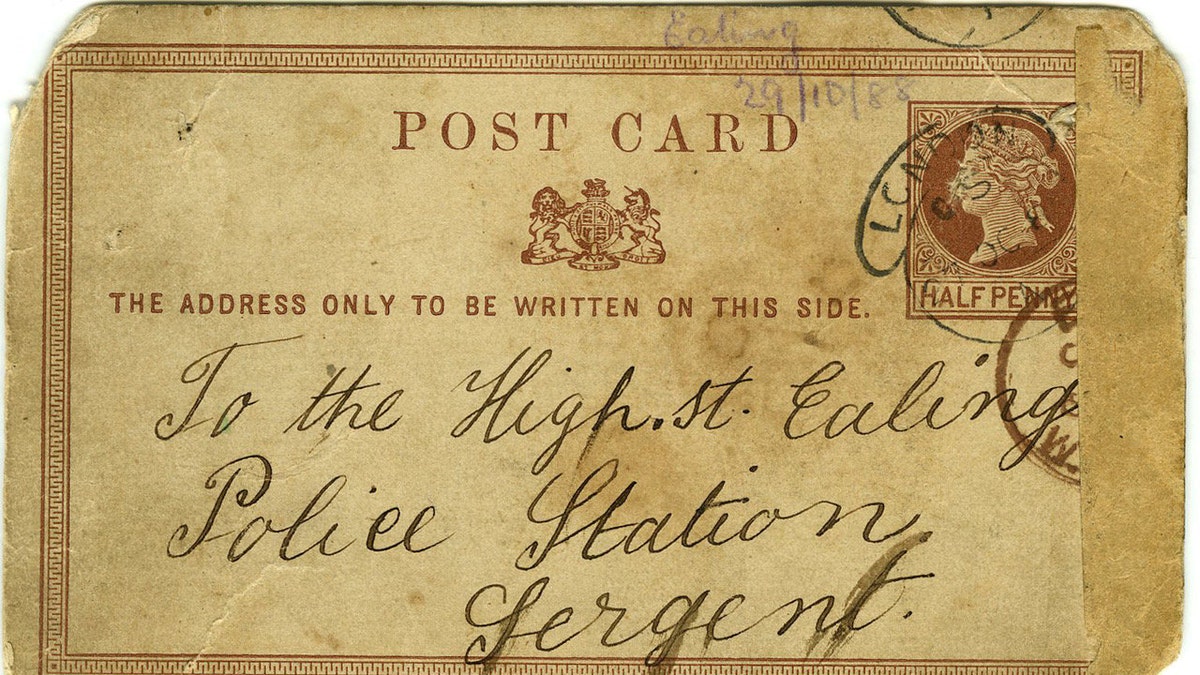 Ealing
29/10/88
POST CARD
THE ADDRESS ONLY TO BE WRITTEN ON THIS SIDE.
HALFPENNY
To the High.st. Ealing
Police Station
Sergent.